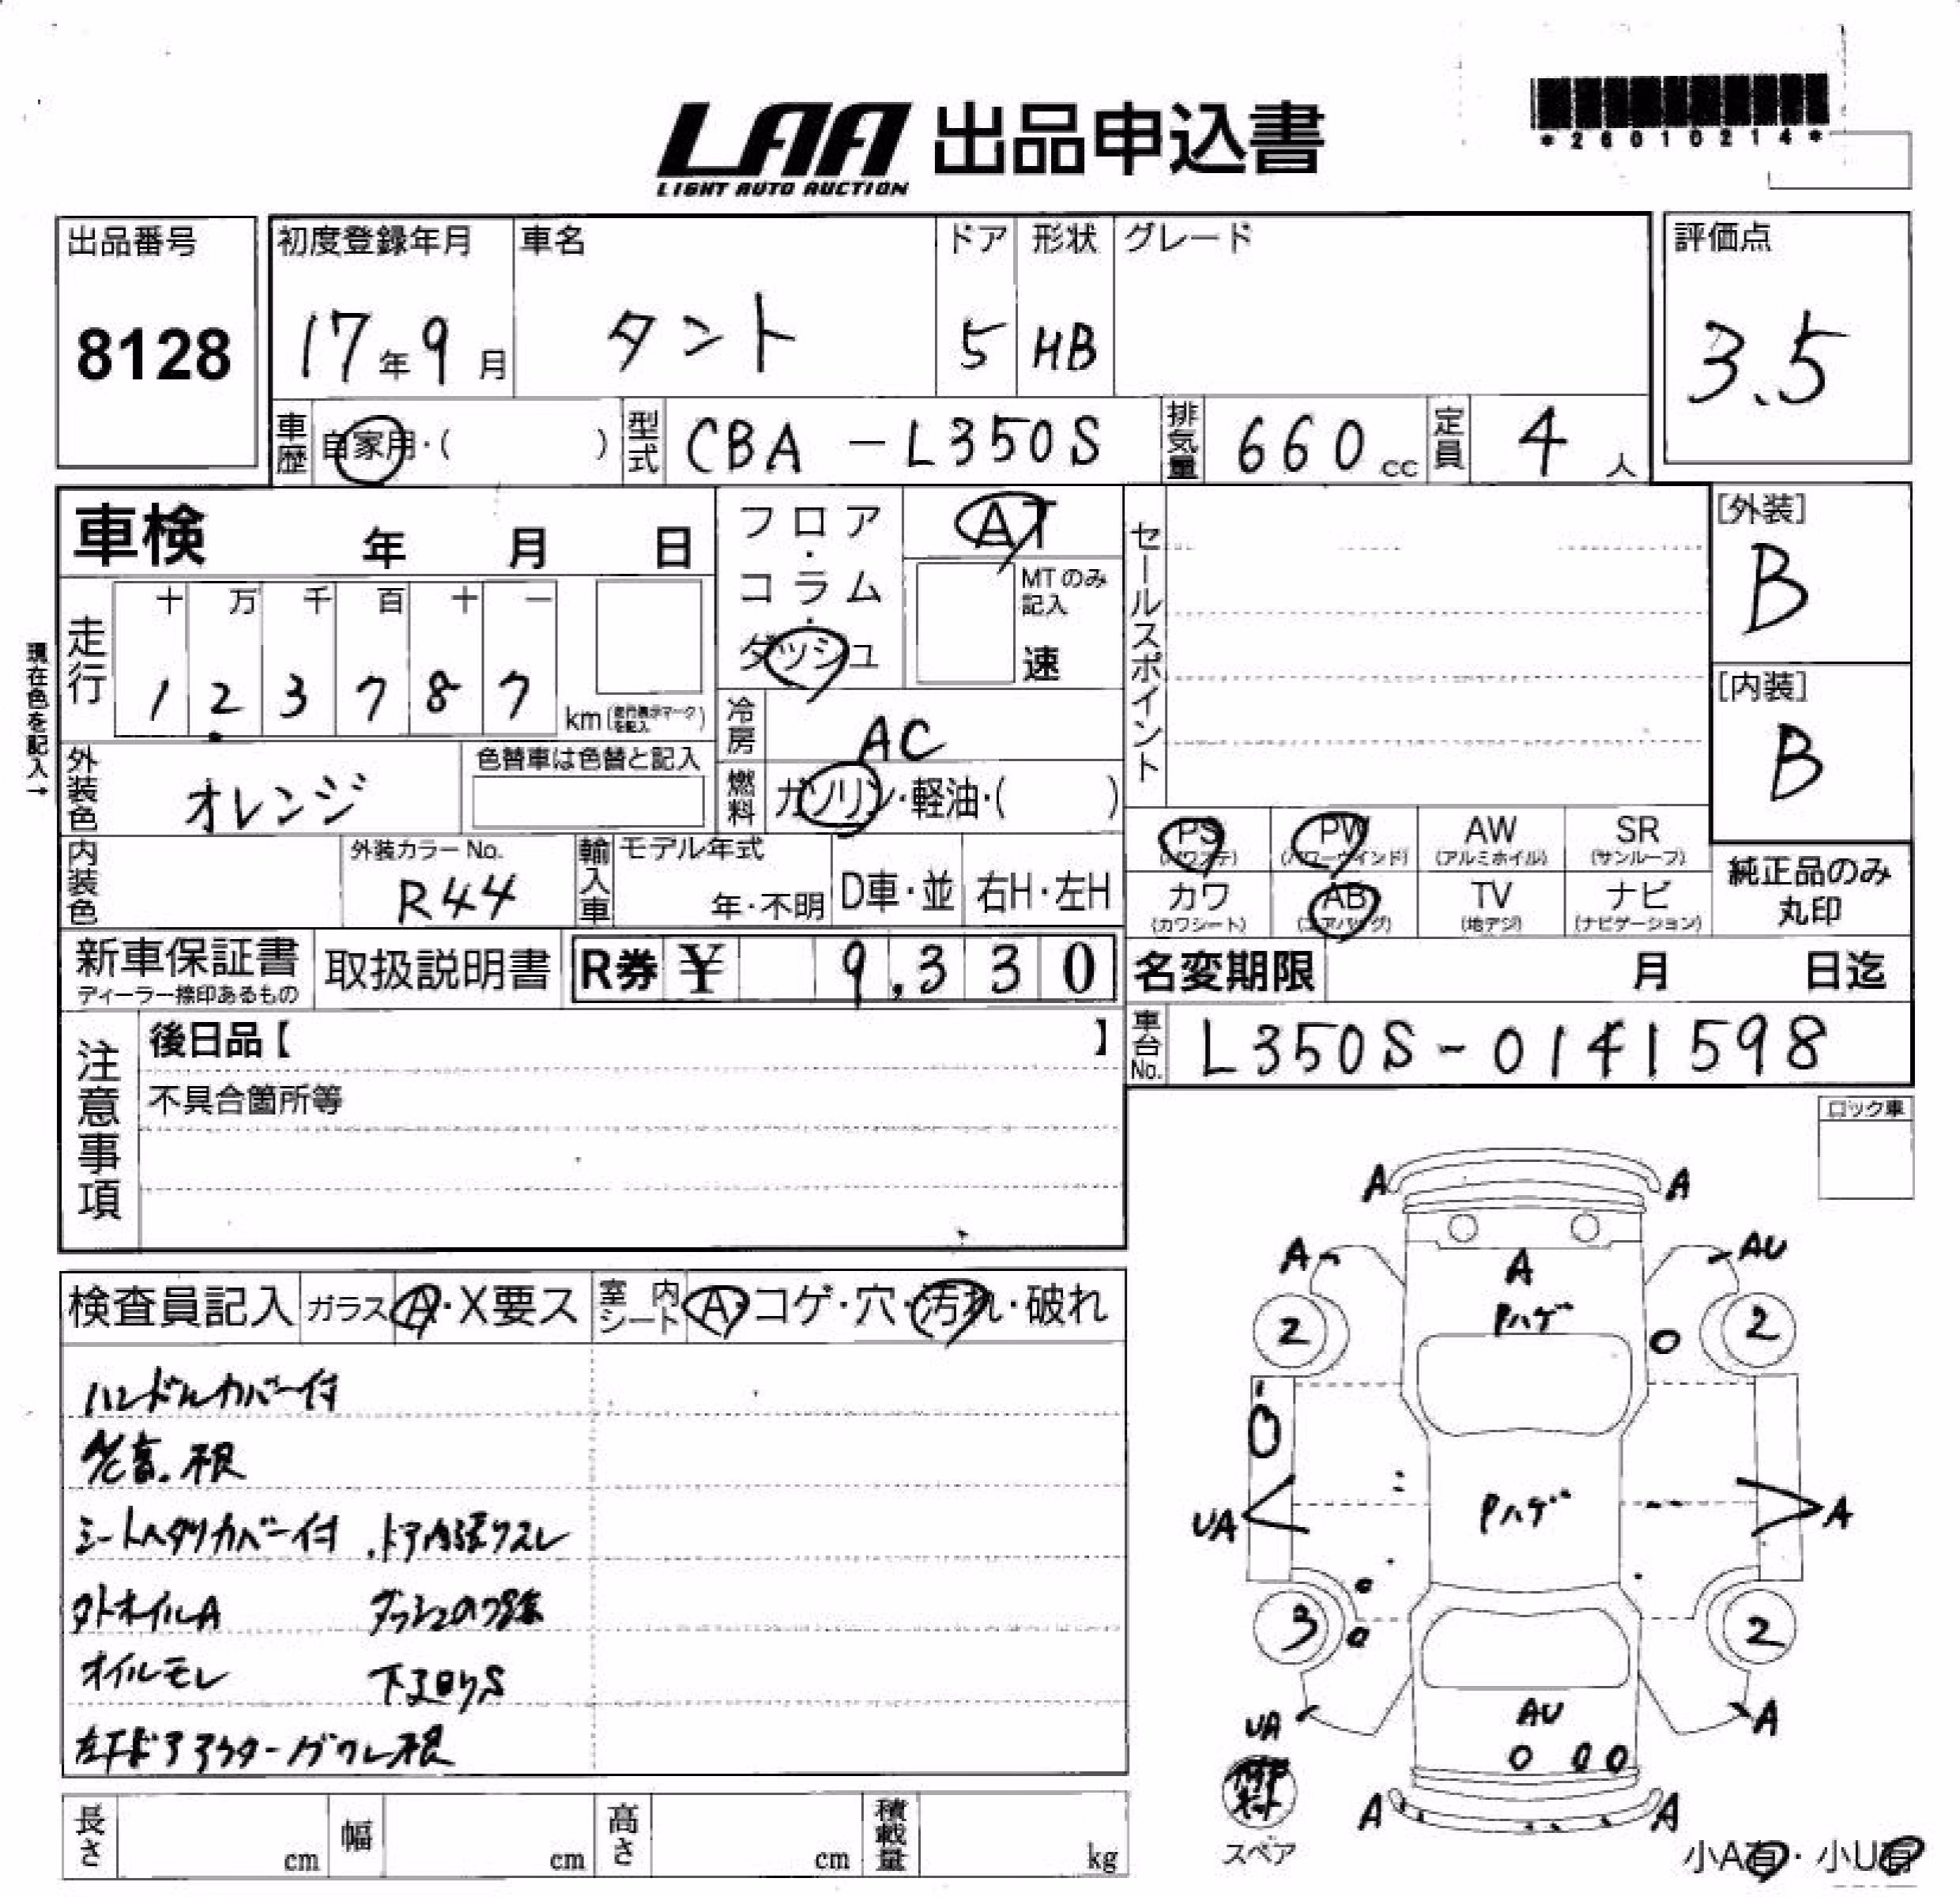 *26010214*
LAA 出品申込書
LIGHT AUTO AUCTION
出品番号
8128
初度登録年月
17年9月
車名
タント
ドア
5
形状
HB
グレード
評価点
3.5
車歴
自家用・( )
型式
CBA-L350S
排気量
660cc
定員
4人
車検 年 月 日
フロア・コラム・ダッシュ
AT
MTのみ記入
速
セールスポイント
[外装]
B
[内装]
B
現在色を記入→
走行
十 万 千 百 十 一
1 2 3 7 8 7
km
冷房
AC
外装色
オレンジ
色替車は色替と記入
燃料
ガソリン・軽油・( )
PS (パワステ)
PW (パワーウインド)
AW (アルミホイル)
SR (サンルーフ)
カワ (カワシート)
AB (エアバッグ)
TV (地デジ)
ナビ (ナビゲーション)
純正品のみ
丸印
内装色
外装カラーNo.
R44
輸入車
モデル年式
年・不明
D車・並
右H・左H
新車保証書
ディーラー捺印あるもの
取扱説明書
R券 ¥ 9,330
名変期限 月 日迄
車台No.
L350S-0141598
注意事項
後日品【 】
不具合箇所等
ロック車
検査員記入
ガラス A・X要ス
室内シート A・コゲ・穴・汚れ・破れ
ハンドルカバー付
シートヘタリカバー付 ドア内張りスレ
オイルモレ 下廻りS
A A
A AU
A
Pハゲ
2 2
Pハゲ
UA A
3 2
UA A
AU
A A
スペア
長さ cm
幅 cm
高さ cm
積載量 kg
小A有・小U有